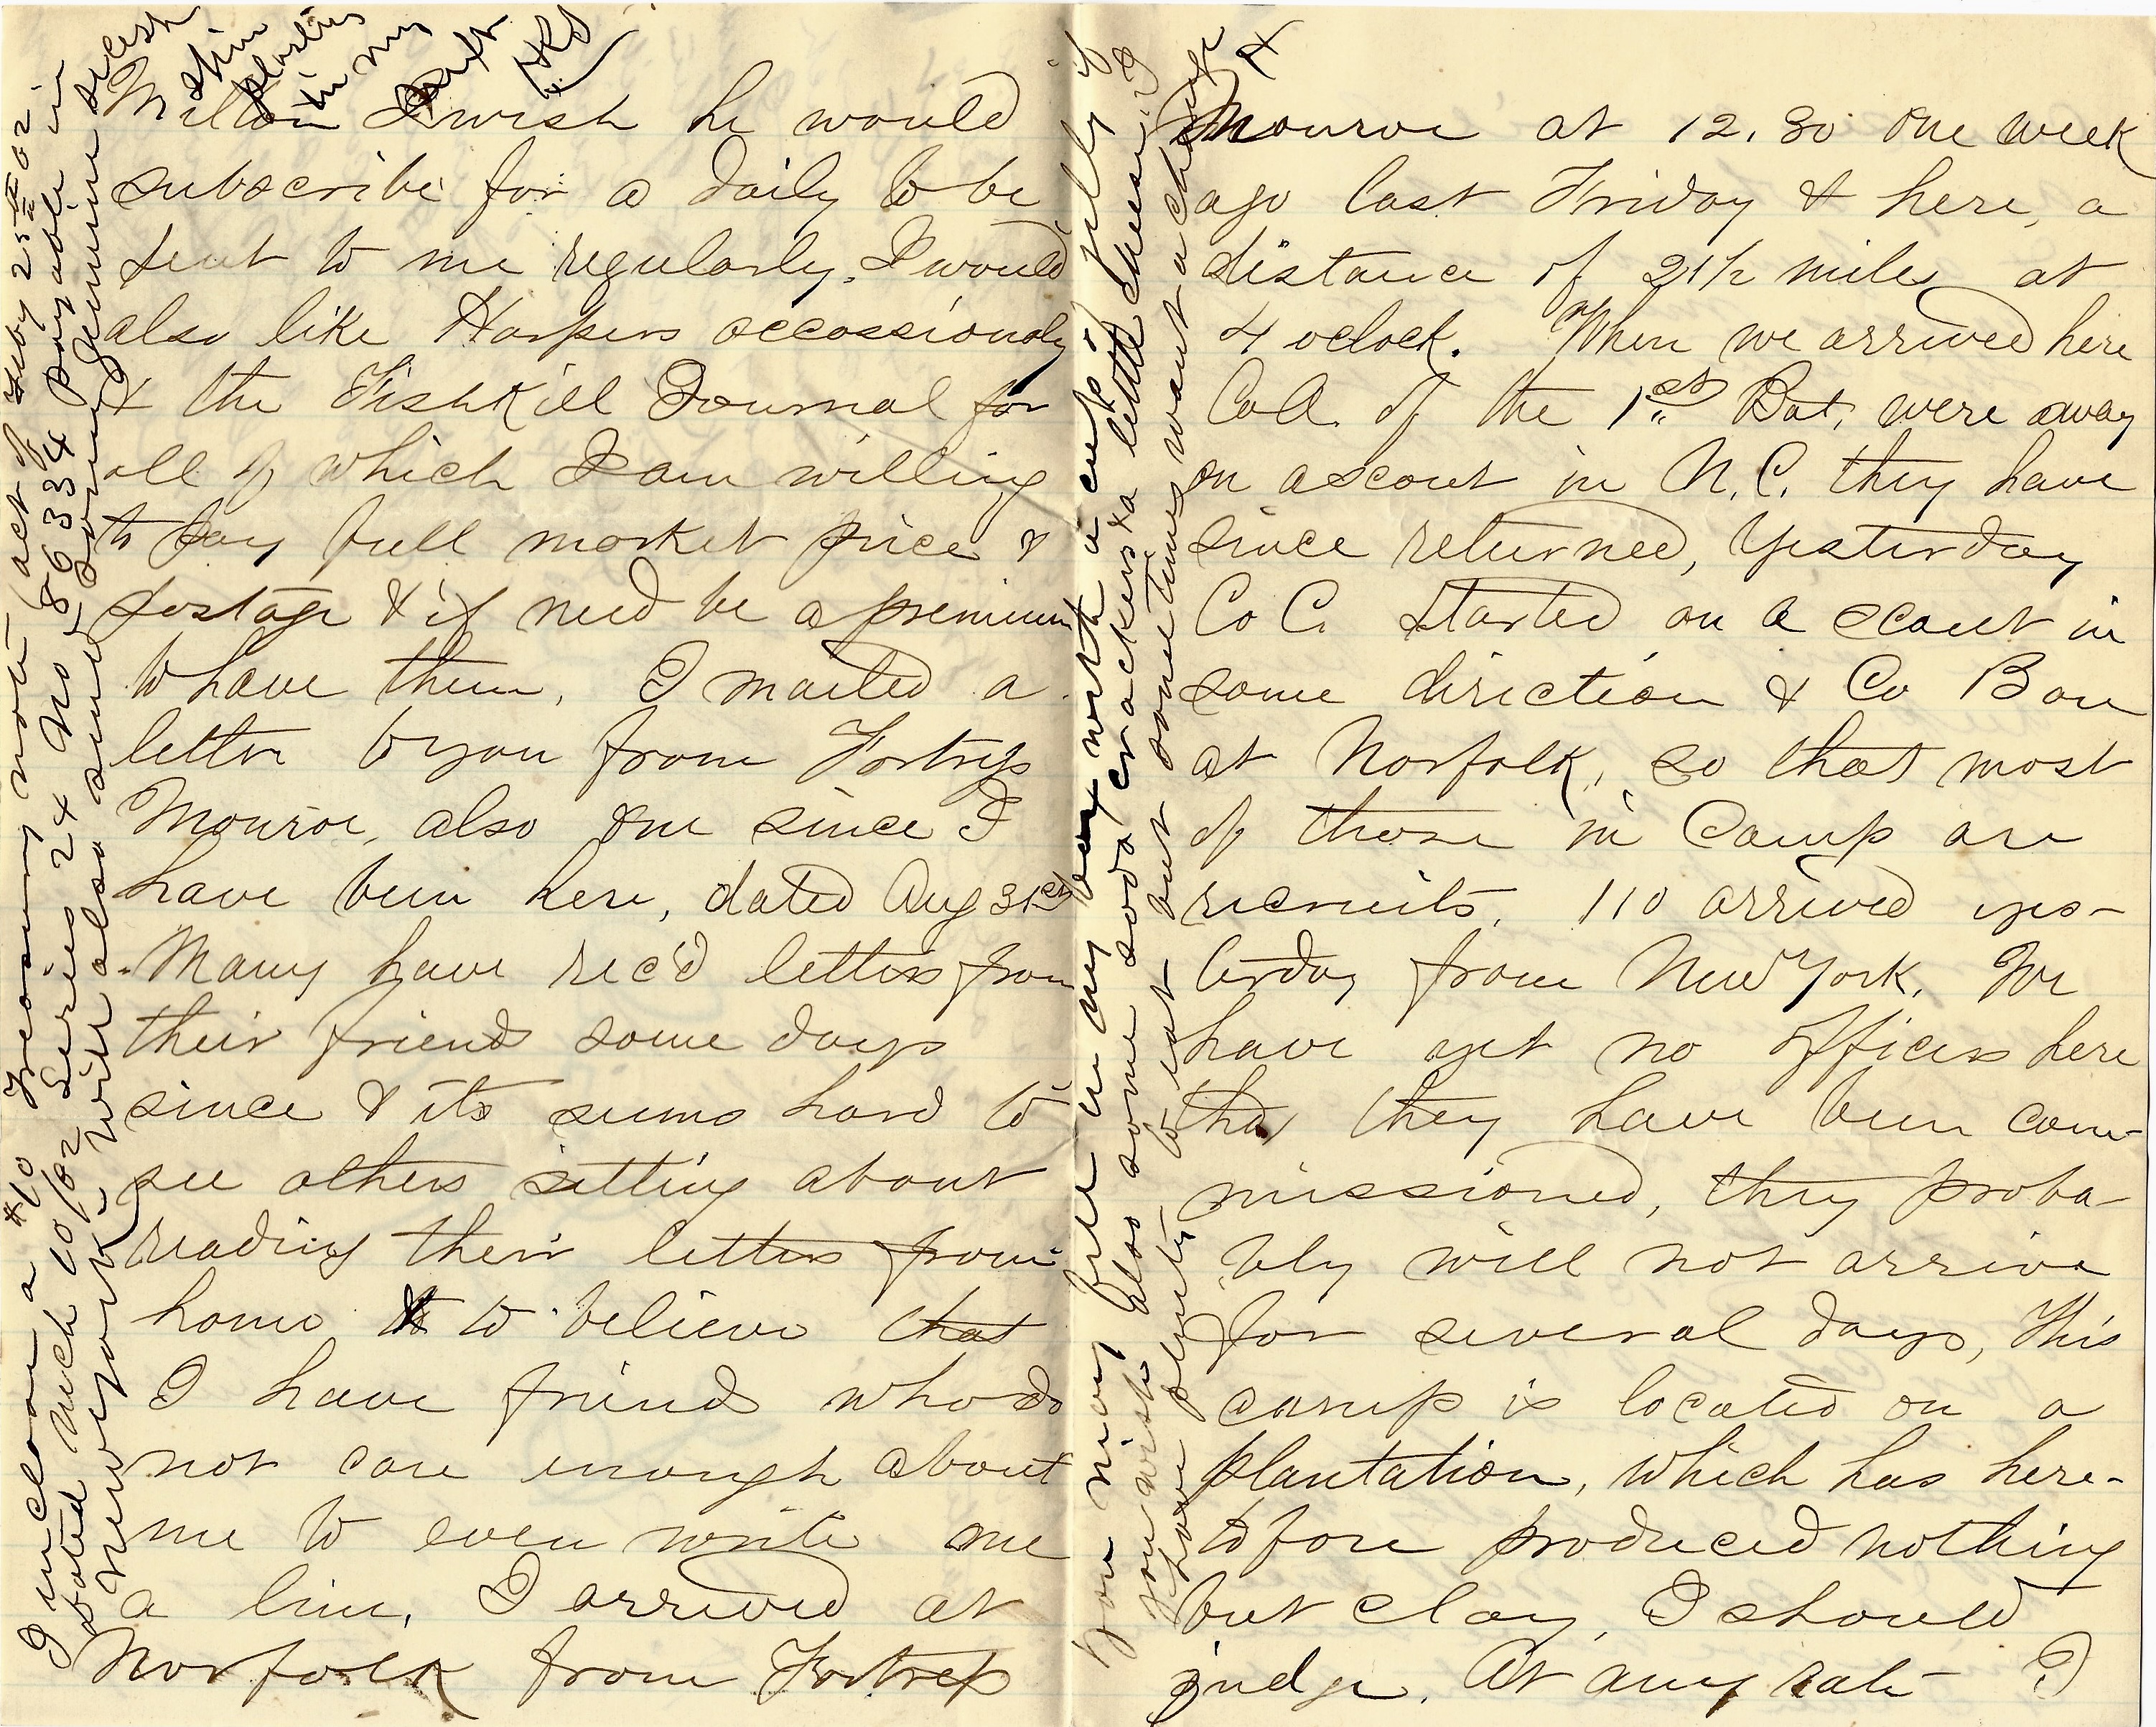 Milton I wish he would
subscribe for a daily to be
sent to me regularly. I would
also like Harpers occassionaly
& the Fishkill Journal for
all of which I am willing
to pay full market price &
postage & if need be a premium
to have them. I mailed a
letter to you from Fortress
Monroe, also one since I
have been here, dated Aug 31st
Many have rec'd letters from
their friends some days
since & its seems hard to
see others sitting about
reading their letters from
home to to believe that
I have friends who do
not care enough about
me to even write me
a line. I arrived at
Norfolk from Fortress
I inclose a $10 Treasury note act of Feby 25th 62.
dated Mch 10/62 Series 24 No 86334 payable in
New York. I will also send some genuine secesh
shin
plasters
in my
next
You may fill in my box with a cup of jelly if
you wish. Also some soda crackers & a little cheese. I
have plenty to eat but sometimes want a change
4
Monroe at 12.30 one week
ago last Friday & here, a
distance of 21½ miles at
4 oclock. When we arrived here
Co A. of the 1st Bat. were away
on a scout in N.C. they have
since returned, Yesterday
Co C. started on a scout in
some direction & Co B are
at Norfolk, so that most
of those in Camp are
recruits. 110 arrived yes-
terday from New York. We
have yet no officers here
tho' they have been com-
missioned, they proba-
bly will not arrive
for several days, This
camp is located on a
plantation, which has here-
tofore produced nothing
but clay, I should
judge. At any rate I